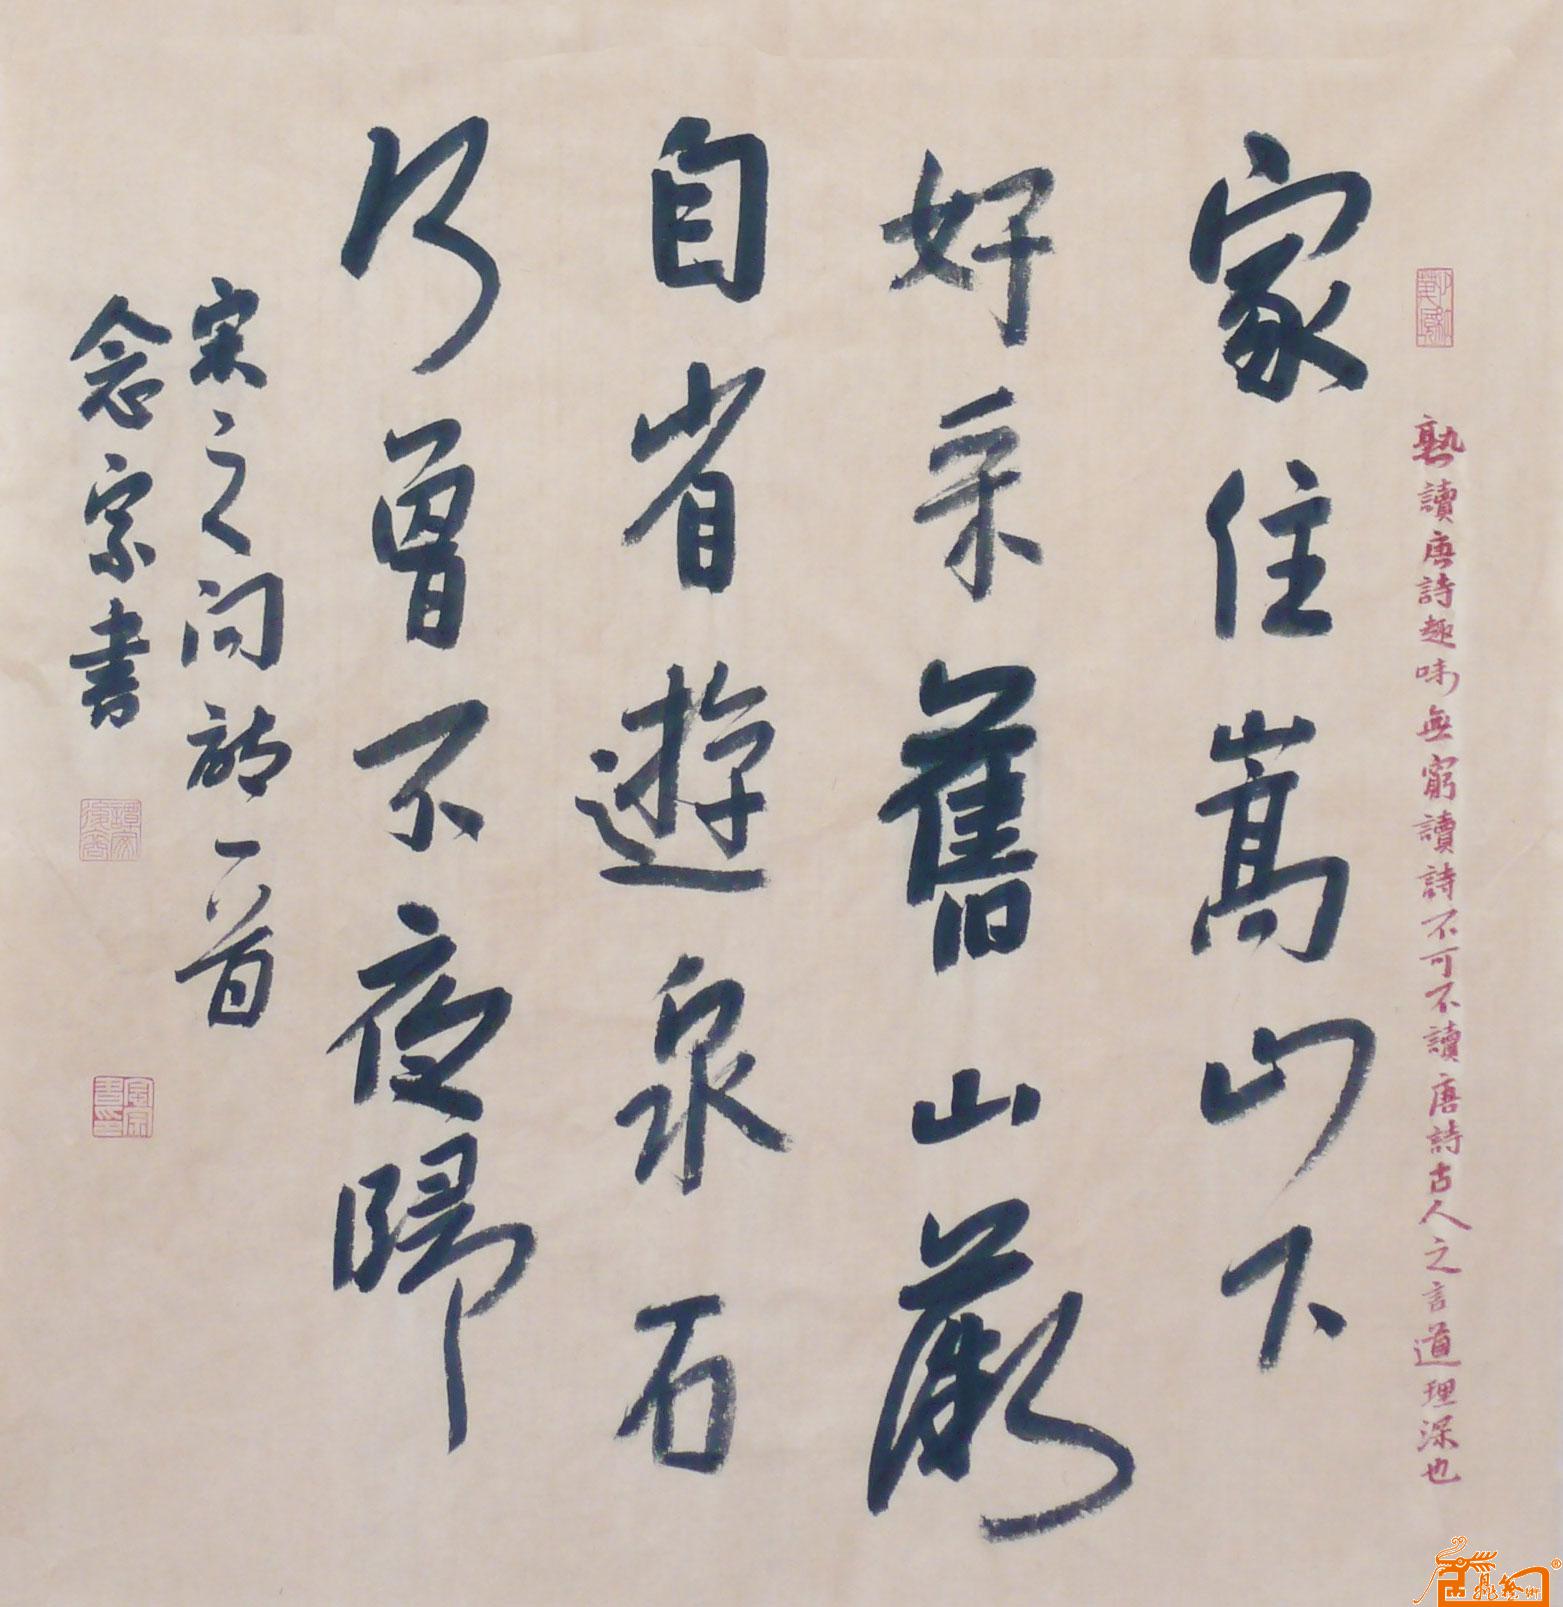 熟讀唐詩趣味無窮讀詩不可不讀唐詩古人之言道理深也
家住嵩山下
好采舊山薇
自省遊泉石
何曾不夜歸
宋之問詩一首
念宗書